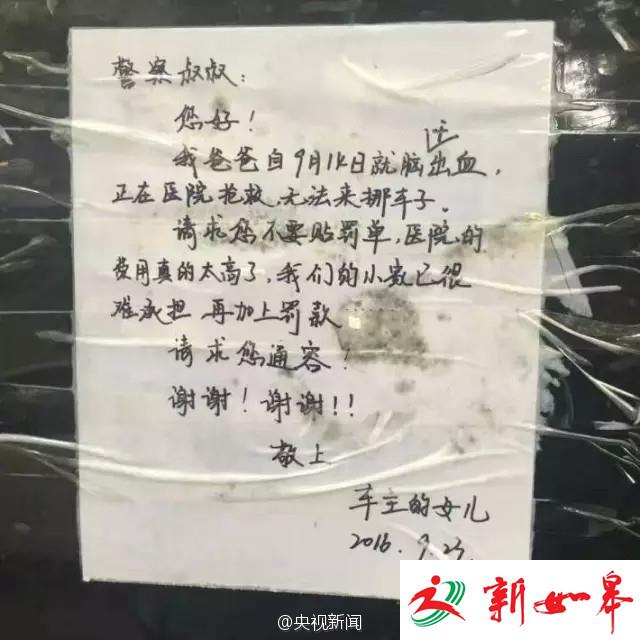 警察叔叔：
您好！
我爸爸自9月14日就脑出血，
正在医院抢救，无法来挪车子。
请求您不要贴罚单，医院的
费用真的太高了，我们的小家已很
难承担 再加上罚款
请求您通容！
谢谢！谢谢！！
敬上
车主的女儿
2016.9.25.
@央视新闻
新如皋